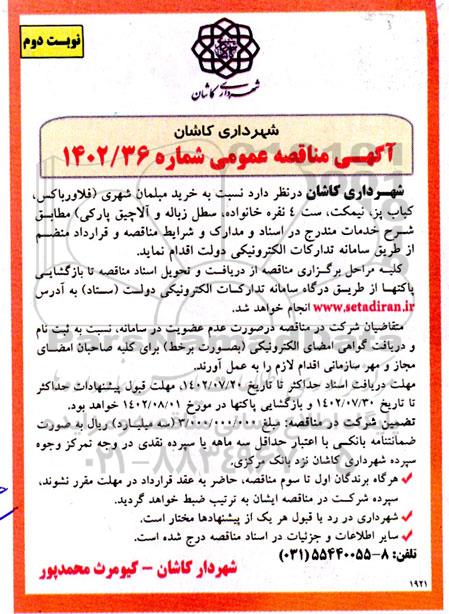 نوبت دوم
شهرداری کاشان
شهرداری کاشان
آگهی مناقصه عمومی شماره ۱۴۰۲/۳۶
شهرداری کاشان درنظر دارد نسبت به خرید مبلمان شهری (فلاورباکس،
کباب پز، نیمکت، ست ۴ نفره خانواده، سطل زباله و آلاچیق پارکی) مطابق
شرح خدمات مندرج در اسناد و مدارک و شرایط مناقصه و قرارداد منضم
از طریق سامانه تدارکات الکترونیکی دولت اقدام نماید.
کلیه مراحل برگزاری مناقصه از دریافت و تحویل اسناد مناقصه تا بازگشایی
پاکتها از طریق درگاه سامانه تدارکات الکترونیکی دولت (ستاد) به آدرس
www.setadiran.ir انجام خواهد شد.
متقاضیان شرکت در مناقصه درصورت عدم عضویت در سامانه، نسبت به ثبت نام
و دریافت گواهی امضای الکترونیکی (بصورت برخط) برای کلیه صاحبان امضای
مجاز و مهر سازمانی اقدام لازم را به عمل آورند.
مهلت دریافت اسناد حداکثر تا تاریخ ۱۴۰۲/۰۷/۲۰، مهلت قبول پیشنهادات حداکثر
تا تاریخ ۱۴۰۲/۰۷/۳۰ و بازگشایی پاکتها در مورخ ۱۴۰۲/۰۸/۰۱ خواهد بود.
تضمین شرکت در مناقصه: مبلغ ۳/۰۰۰/۰۰۰/۰۰۰ (سه میلیارد) ریال به صورت
ضمانتنامه بانکی با اعتبار حداقل سه ماهه یا سپرده نقدی در وجه تمرکز وجوه
سپرده شهرداری کاشان نزد بانک مرکزی.
✓ هرگاه برندگان اول تا سوم مناقصه، حاضر به عقد قرارداد در مهلت مقرر نشوند،
سپرده شرکت در مناقصه ایشان به ترتیب ضبط خواهد گردید.
✓ شهرداری در رد یا قبول هر یک از پیشنهادها مختار است.
✓ سایر اطلاعات و جزئیات در اسناد مناقصه درج شده است.
تلفن: ۸-۵۵۴۴۰۰۵۵ (۰۳۱)
شهردار کاشان - کیومرث محمدپور
۱۹۲۱